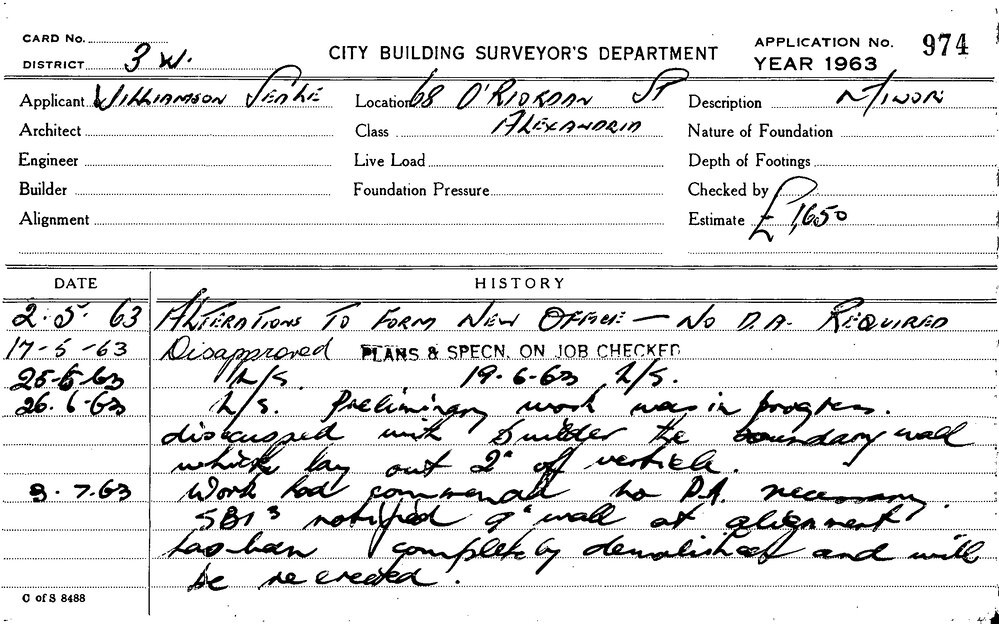 CARD No.
DISTRICT 3 W.
CITY BUILDING SURVEYOR'S DEPARTMENT
APPLICATION No. 974
YEAR 1963
Applicant WILLIAMSON Location 68 O'RIORDAN ST Description MINOR
Architect Class ALEXANDRIA Nature of Foundation
Engineer Live Load Depth of Footings
Builder Foundation Pressure Checked by
Alignment Estimate £1,650
DATE HISTORY
2.5.63 ALTERATIONS TO FORM NEW OFFICE — NO D.A. REQUIRED
17-5-63 Disapproved PLANS & SPECN. ON JOB CHECKED
19.6.63
26.6.63 Preliminary work was in progress.
discussed with builder the boundary wall
which lay out 2" off verticle.
8.7.63 Work had commenced no D.A. necessary
notified 9" wall at alignment
has been completely demolished and will
be re erected.
C of S 8488